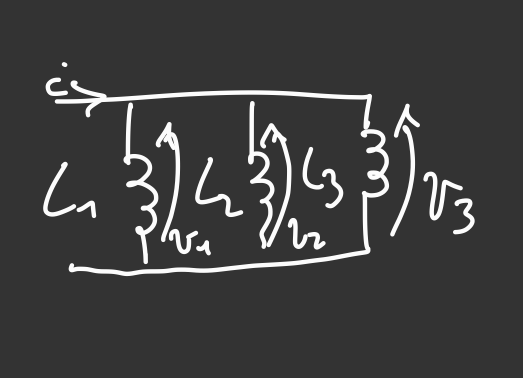 i
L1 v1 L2 v2 L3 v3